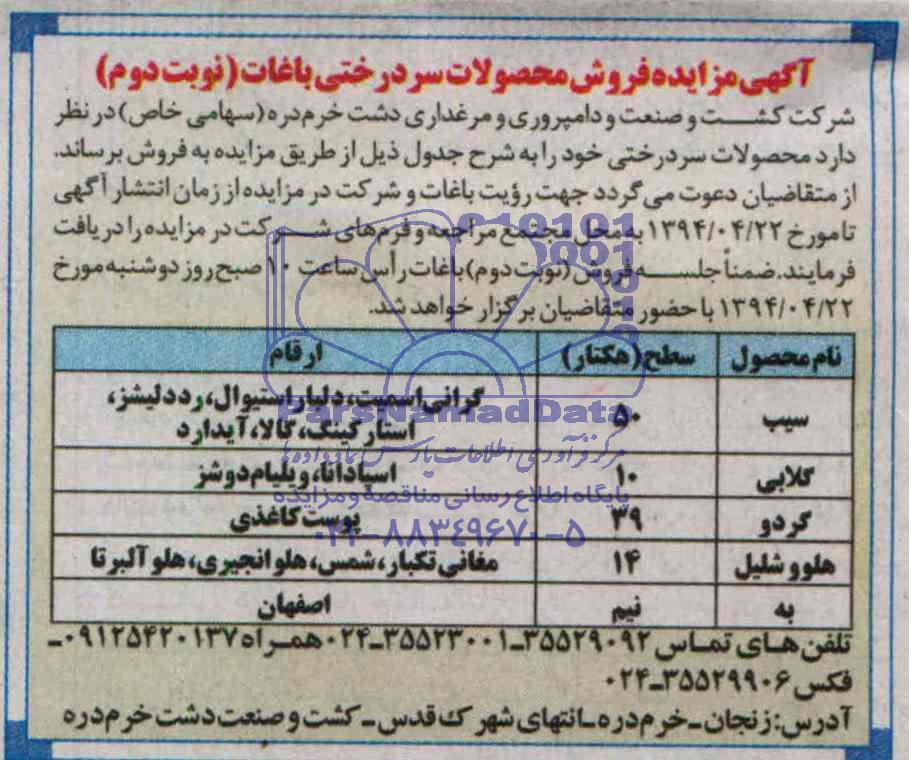 آگهی مزایده فروش محصولات سردرختی باغات (نوبت دوم)
شرکت کشت و صنعت و دامپروری و مرغداری دشت خرم‌دره (سهامی خاص) در نظر
دارد محصولات سردرختی خود را به شرح جدول ذیل از طریق مزایده به فروش برساند.
از متقاضیان دعوت می گردد جهت رؤیت باغات و شرکت در مزایده از زمان انتشار آگهی
تا مورخ ۱۳۹۴/۰۴/۲۲ به محل مجتمع مراجعه و فرم‌های شرکت در مزایده را دریافت
فرمایند. ضمناً جلسه فروش (نوبت دوم) باغات رأس ساعت ۱۰ صبح روز دوشنبه مورخ
۱۳۹۴/۰۴/۲۲ با حضور متقاضیان برگزار خواهد شد.
نام محصول سطح (هکتار) ارقام
سیب ۵۰ گرانی اسمیت، دلبار استیوال، رددلیشز،
استارکینگ، گالا، آیدارد
گلابی ۱۰ اسپادانا، ویلیام دوشز
گردو ۳۹ پوست کاغذی
هلو و شلیل ۱۴ مغانی تکبار، شمس، هلو انجیری، هلو آلبرتا
به نیم اصفهان
تلفن های تماس ۳۵۵۲۹۰۹۲ـ۳۵۵۲۳۰۰۱ـ۰۲۴ همراه ۰۹۱۲۵۴۲۰۱۳۷ـ
فکس ۳۵۵۲۹۹۰۶ـ۰۲۴
آدرس: زنجان ـ خرم‌دره ـ انتهای شهرک قدس ـ کشت و صنعت دشت خرم‌دره
ParsNamadData
مرکز فرآوری اطلاعات پارس نماد داده ها
پایگاه اطلاع رسانی مناقصه و مزایده
۰۲۱-۸۸۳۴۹۶۷۰-۵